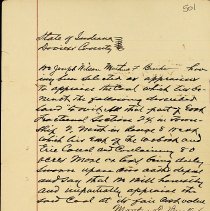 501
State of Indiana
Daviess County
We Joseph Wilson Martin F Burke
having been selected as appraisers
to appraise the Coal which lies be-
neath the following described
land to wit that part of
Fractional Section 24 in Town-
ship 2 North in Range 8 West
which lies East of the Wabash and
Erie Canal and Containing 80
acres More or less being duly
sworn upon our oaths depose
and say that we will honestly
and impartially appraise the
said Coal at its fair cash value